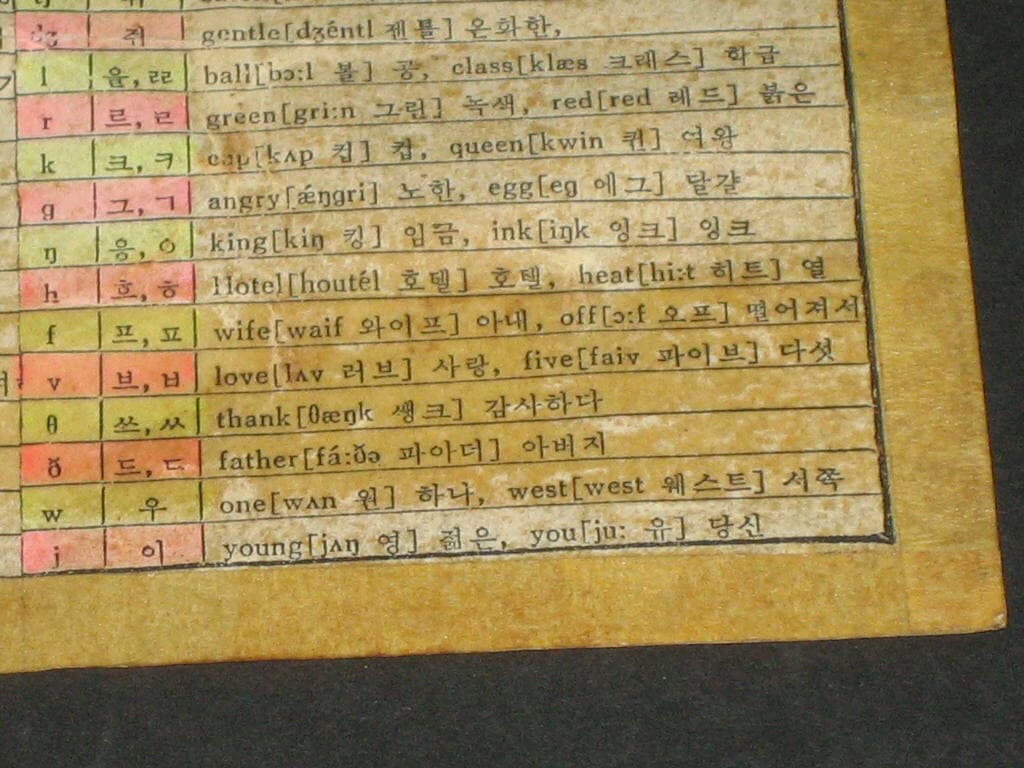 ʤ 쥐 gentle[ʤéntl 젠틀] 온화한,
l 을, ㄹㄹ ball[bɔ:l 볼] 공, class[klæs 크래스] 학급
r 르, ㄹ green[gri:n 그린] 녹색, red[red 레드] 붉은
k 크, ㅋ cup[kʌp 컵] 컵, queen[kwin 퀸] 여왕
g 그, ㄱ angry[ǽŋgri] 노한, egg[eg 에그] 달걀
ŋ 응, ㅇ king[kiŋ 킹] 임금, ink[iŋk 잉크] 잉크
h 흐, ㅎ Hotel[houtél 호텔] 호텔, heat[hi:t 히트] 열
f 프, ㅍ wife[waif 와이프] 아내, off[ɔ:f 오프] 떨어져서
v 브, ㅂ love[lʌv 러브] 사랑, five[faiv 파이브] 다섯
θ 쓰, ㅆ thank[θæŋk 쌩크] 감사하다
ð 드, ㄷ father[fá:ðə 파아더] 아버지
w 우 one[wʌn 원] 하나, west[west 웨스트] 서쪽
j 이 young[jʌŋ 영] 젊은, you[ju: 유] 당신